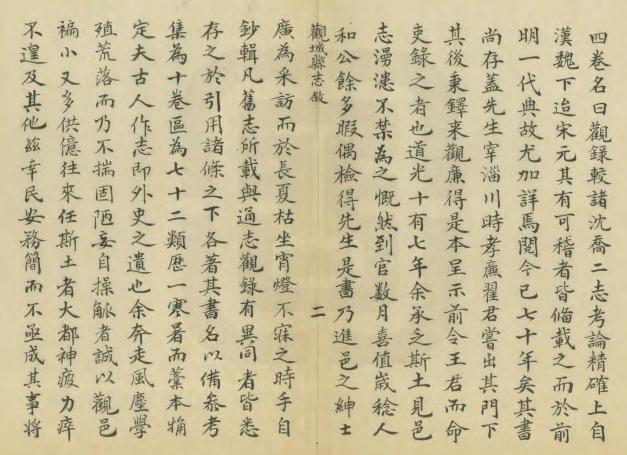 四卷名曰觀錄較諸沈喬二志考論精確上自
漢魏下迨宋元其有可稽者皆備載之而於前
明一代典故尤加詳焉閱今已七十年矣其書
尚存蓋先生宰淄川時孝廉翟君嘗出其門下
其後秉鐸來觀廉得是本呈示前令王君而命
吏錄之者也道光十有七年余承乏斯土見邑
志漫漶不禁為之慨然到官數月喜值歲稔人
和公餘多暇偶檢得先生是書乃進邑之紳士
觀城縣志敘
二
廣為采訪而於長夏枯坐宵燈不寐之時手自
鈔輯凡舊志所載與通志觀錄有異同者皆悉
存之於引用諸條之下各著其書名以備參考
集為十卷區為七十二類歷一寒暑而藁本觕
定夫古人作志即外史之遺也余奔走風塵學
殖荒落而乃不揣固陋妄自操觚者誠以觀邑
褊小又多供億往來任斯土者大都神疲力瘁
不遑及其他茲幸民安務簡而不亟成其事將